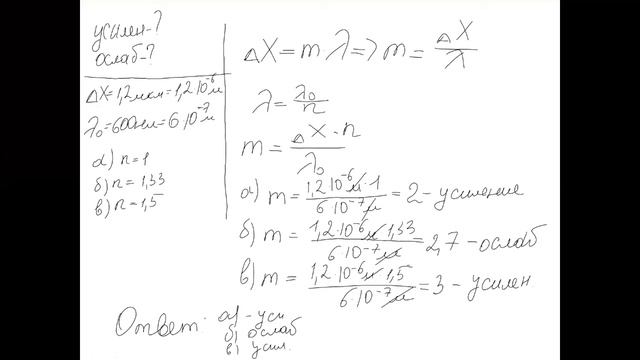 усилен-?
ослаб-?
ΔX=1,2мкм=1,2·10⁻⁶м
λ₀=600нм=6·10⁻⁷м
а) n=1
б) n=1,33
в) n=1,5
ΔX=mλ=>m=ΔX/λ
λ=λ₀/n
m=ΔX·n/λ₀
а) m=1,2·10⁻⁶м·1/6·10⁻⁷м=2-усиление
б) m=1,2·10⁻⁶м·1,33/6·10⁻⁷м=2,7-ослаб
в) m=1,2·10⁻⁶м·1,5/6·10⁻⁷м=3-усилен
Ответ: а)-уси
б) ослаб
в) усил.